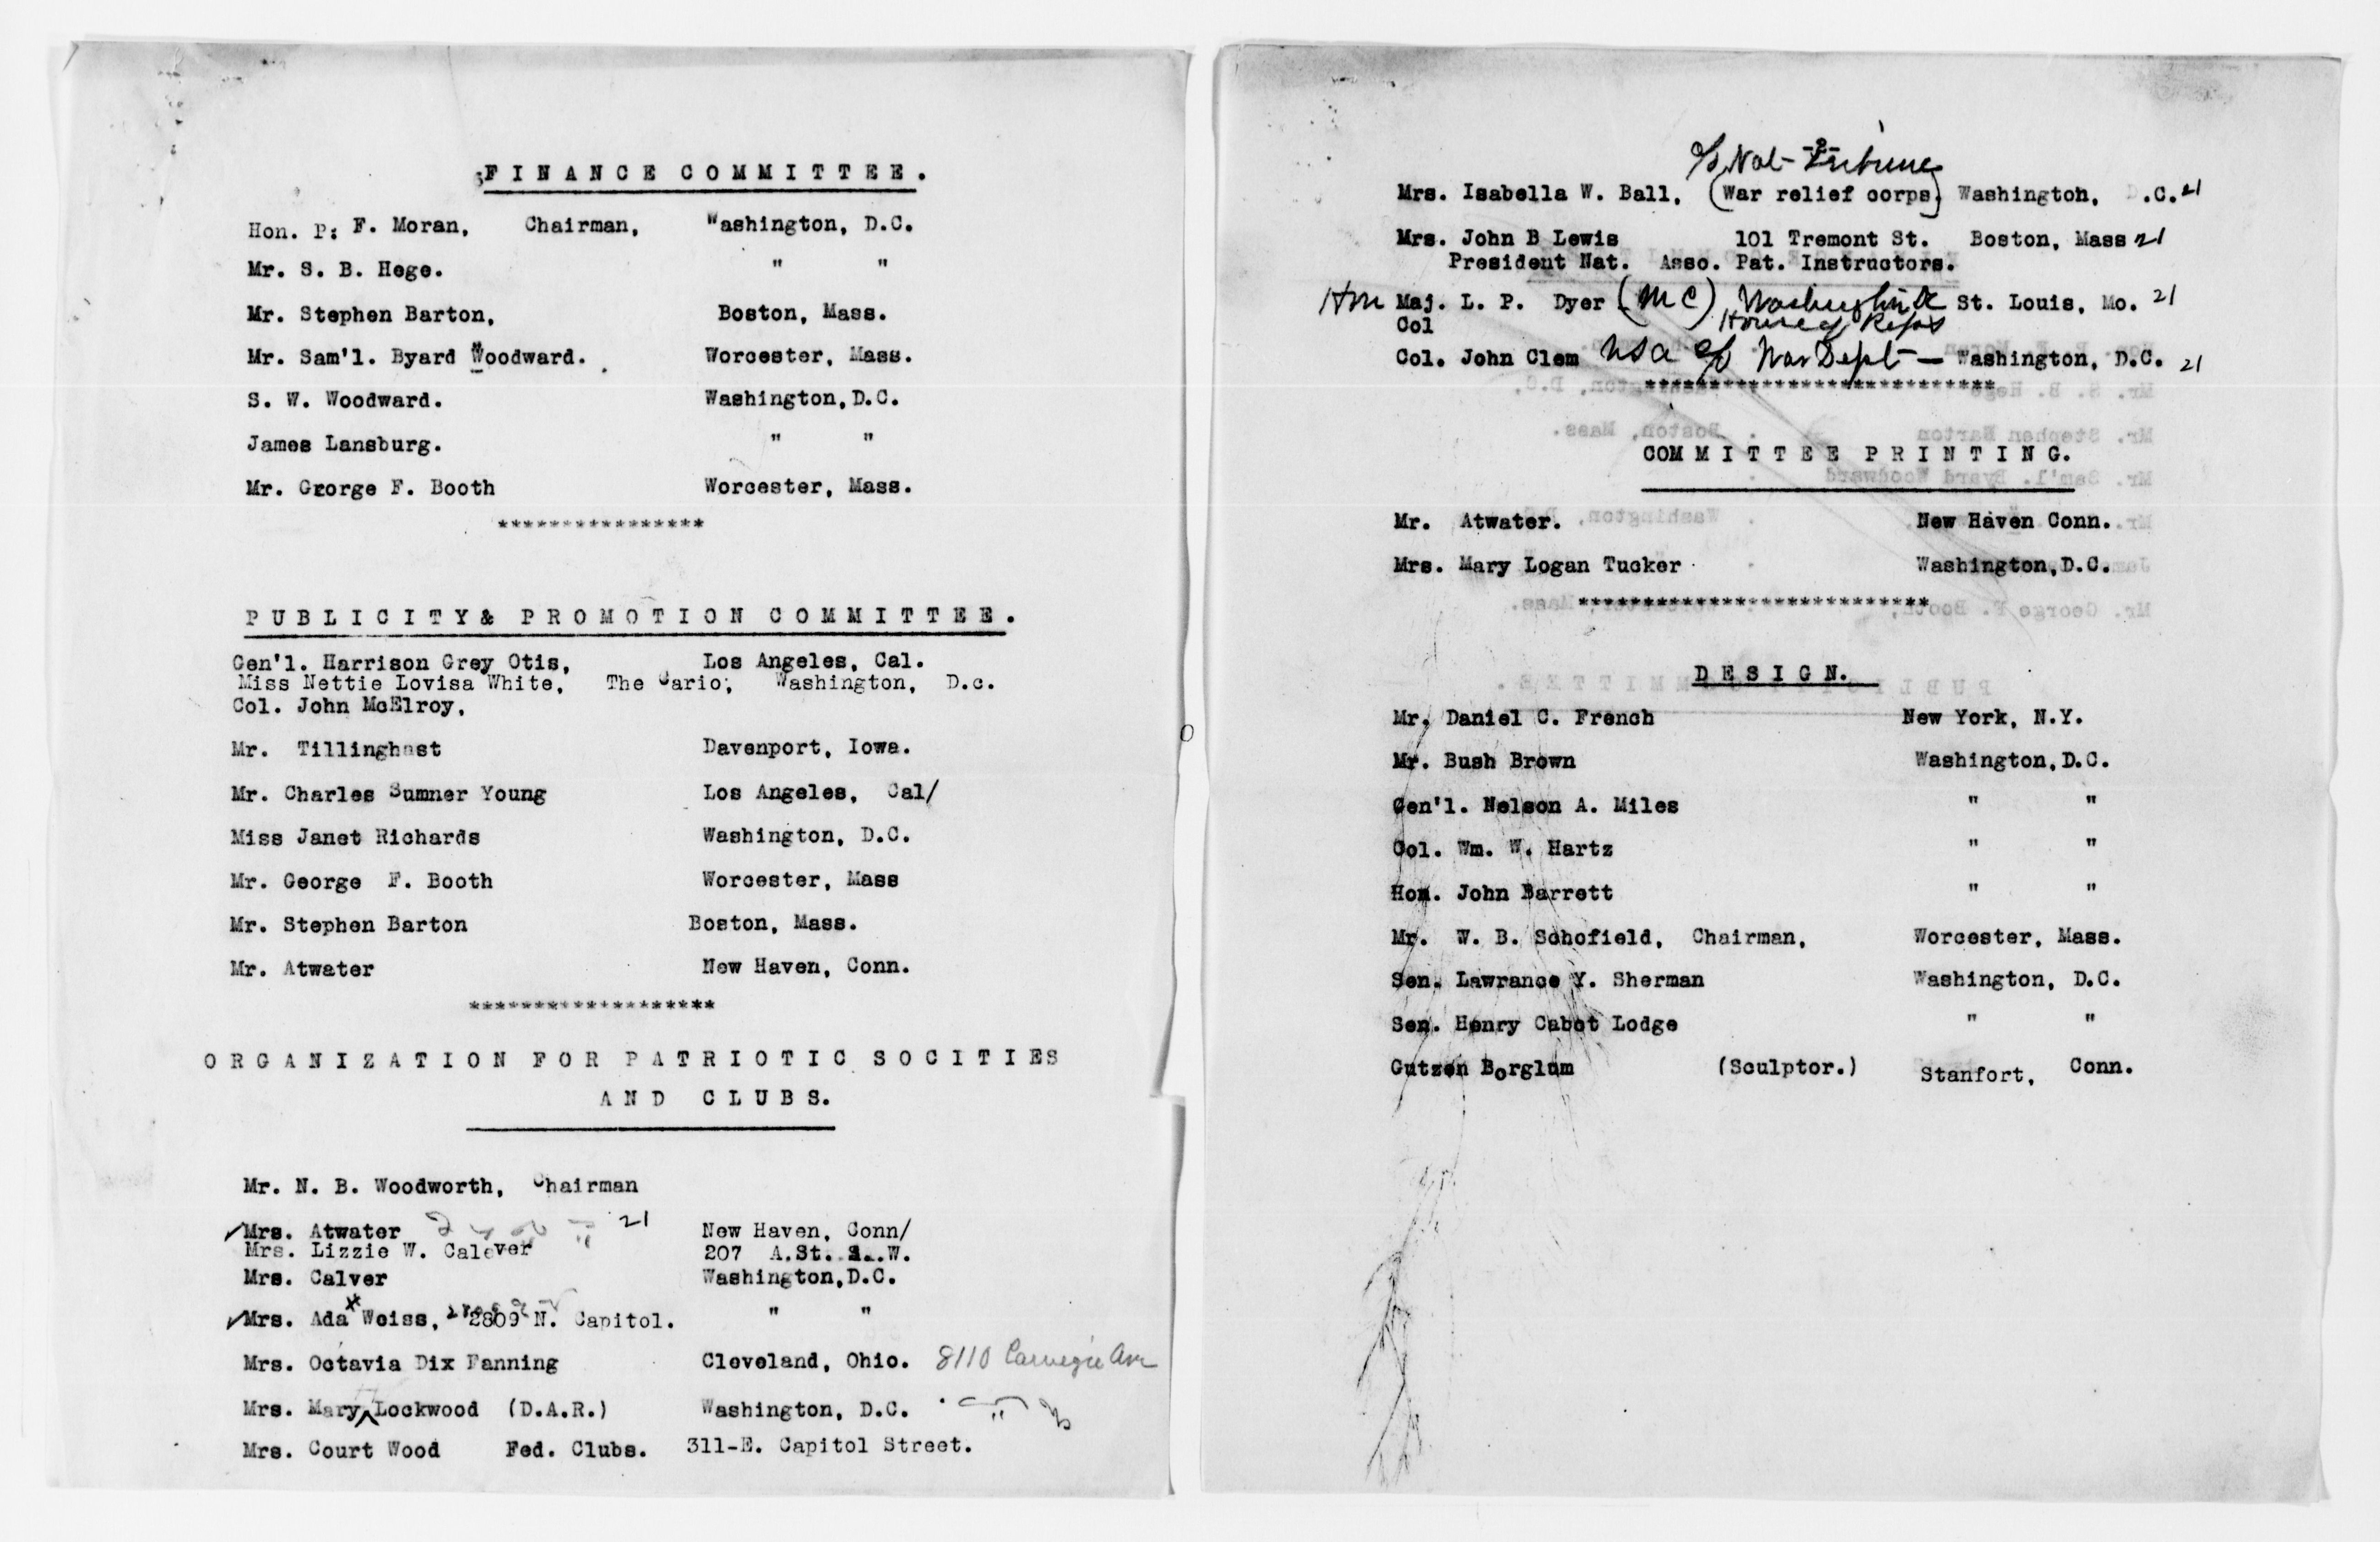 FINANCE COMMITTEE.
Hon. P: F. Moran, Chairman, Washington, D.C.
Mr. S. B. Hege. " "
Mr. Stephen Barton, Boston, Mass.
Mr. Sam'l. Byard Woodward. Worcester, Mass.
S. W. Woodward. Washington,D.C.
James Lansburg. " "
Mr. Grorge F. Booth Worcester, Mass.
****************
PUBLICITY& PROMOTION COMMITTEE.
Gen'l. Harrison Grey Otis, Los Angeles, Cal.
Miss Nettie Lovisa White, The Cario, Washington, D.c.
Col. John McElroy,
Mr. Tillinghast Davenport, Iowa.
Mr. Charles Sumner Young Los Angeles, Cal/
Miss Janet Richards Washington, D.C.
Mr. George F. Booth Worcester, Mass
Mr. Stephen Barton Boston, Mass.
Mr. Atwater New Haven, Conn.
*******************
ORGANIZATION FOR PATRIOTIC SOCITIES
AND CLUBS.
Mr. N. B. Woodworth, Chairman
✓Mrs. Atwater 21 New Haven, Conn/
Mrs. Lizzie W. Calver 207 A.St. W.
Mrs. Calver Washington,D.C.
✓Mrs. Ada Weiss, 2809 N. Capitol. " "
Mrs. Octavia Dix Fanning Cleveland, Ohio. 8110 Carnegie Ave
Mrs. Mary Lockwood (D.A.R.) Washington, D.C.
Mrs. Court Wood Fed. Clubs. 311-E. Capitol Street.
-2-
c/o Nat-Tribune
Mrs. Isabella W. Ball, (War relief corps) Washington, D.C. 21
Mrs. John B Lewis 101 Tremont St. Boston, Mass 21
President Nat. Asso. Pat. Instructors.
Hon Maj. L. P. Dyer (MC) Washington DC St. Louis, Mo. 21
Col House of Reps
Col. John Clem USA c/o War Dept — Washington, D.C. 21
***************************
COMMITTEE PRINTING.
Mr. Atwater. New Haven Conn.
Mrs. Mary Logan Tucker Washington,D.C.
***************************
DESIGN.
Mr. Daniel C. French New York, N.Y.
Mr. Bush Brown Washington,D.C.
Gen'l. Nelson A. Miles " "
Col. Wm. W. Hartz " "
Hon. John Barrett " "
Mr. W. B. Schofield, Chairman, Worcester, Mass.
Sen. Lawrance Y. Sherman Washington, D.C.
Sen. Henry Cabot Lodge " "
Gutzon Borglum (Sculptor.) Stanfort, Conn.